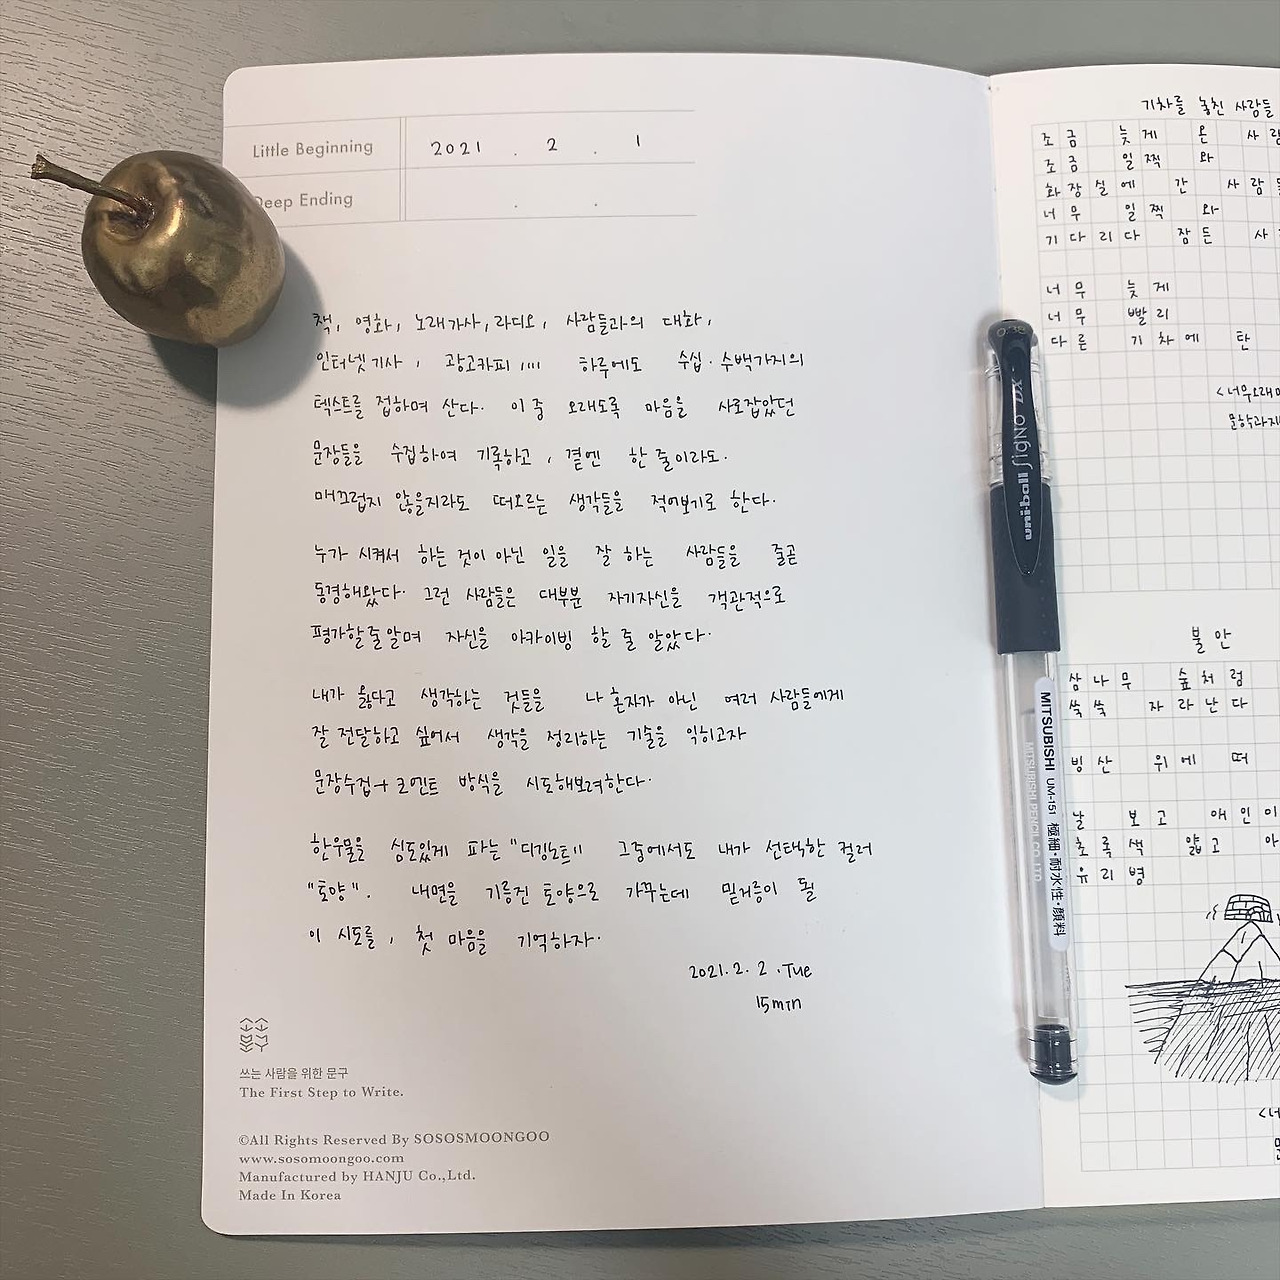 Little Beginning 2021 . 2 . 1
Deep Ending . .
책, 영화, 노래가사, 라디오, 사람들과의 대화,
인터넷기사, 광고카피,,,, 하루에도 수십·수백가지의
텍스트를 접하며 산다. 이 중 오래도록 마음을 사로잡았던
문장들을 수집하여 기록하고, 곁엔 한 줄이라도.
매끄럽지 않을지라도 떠오르는 생각들을 적어보기로 한다.
누가 시켜서 하는 것이 아닌 일을 잘 하는 사람들을 줄곧
동경해왔다. 그런 사람들은 대부분 자기자신을 객관적으로
평가할 줄 알며 자신을 아카이빙 할 줄 알았다.
내가 옳다고 생각하는 것들을 나 혼자가 아닌 여러 사람들에게
잘 전달하고 싶어서 생각을 정리하는 기술을 익히고자
문장수집 → 코멘트 방식을 시도해보려한다.
한우물을 심도있게 파는 "디깅노트" 그중에서도 내가 선택한 컬러
"토양". 내면을 기름진 토양으로 가꾸는데 밑거름이 될
이 시도를, 첫 마음을 기억하자.
2021. 2. 2 .Tue
15min
쓰는 사람을 위한 문구
The First Step to Write.
©All Rights Reserved By SOSOSMOONGOO
www.sosomoongoo.com
Manufactured by HANJU Co.,Ltd.
Made In Korea
0.38
uni-ball SigNO DX
MITSUBISHI UM-151 極細·耐水性·顔料
MITSUBISHI PENCIL CO., LTD
기차를 놓친 사람들
조금 늦게 온
조금 일찍 와
화장실에 간 사람
너무 일찍 와
기다리다 잠든
너무 늦게
너무 빨리
다른 기차에 탄
<너무오래
불안
삼나무 숲처럼
쑥쑥 자라난다
빙산 위에 떠
날 보고 애인이
초록색 얇고
유리병